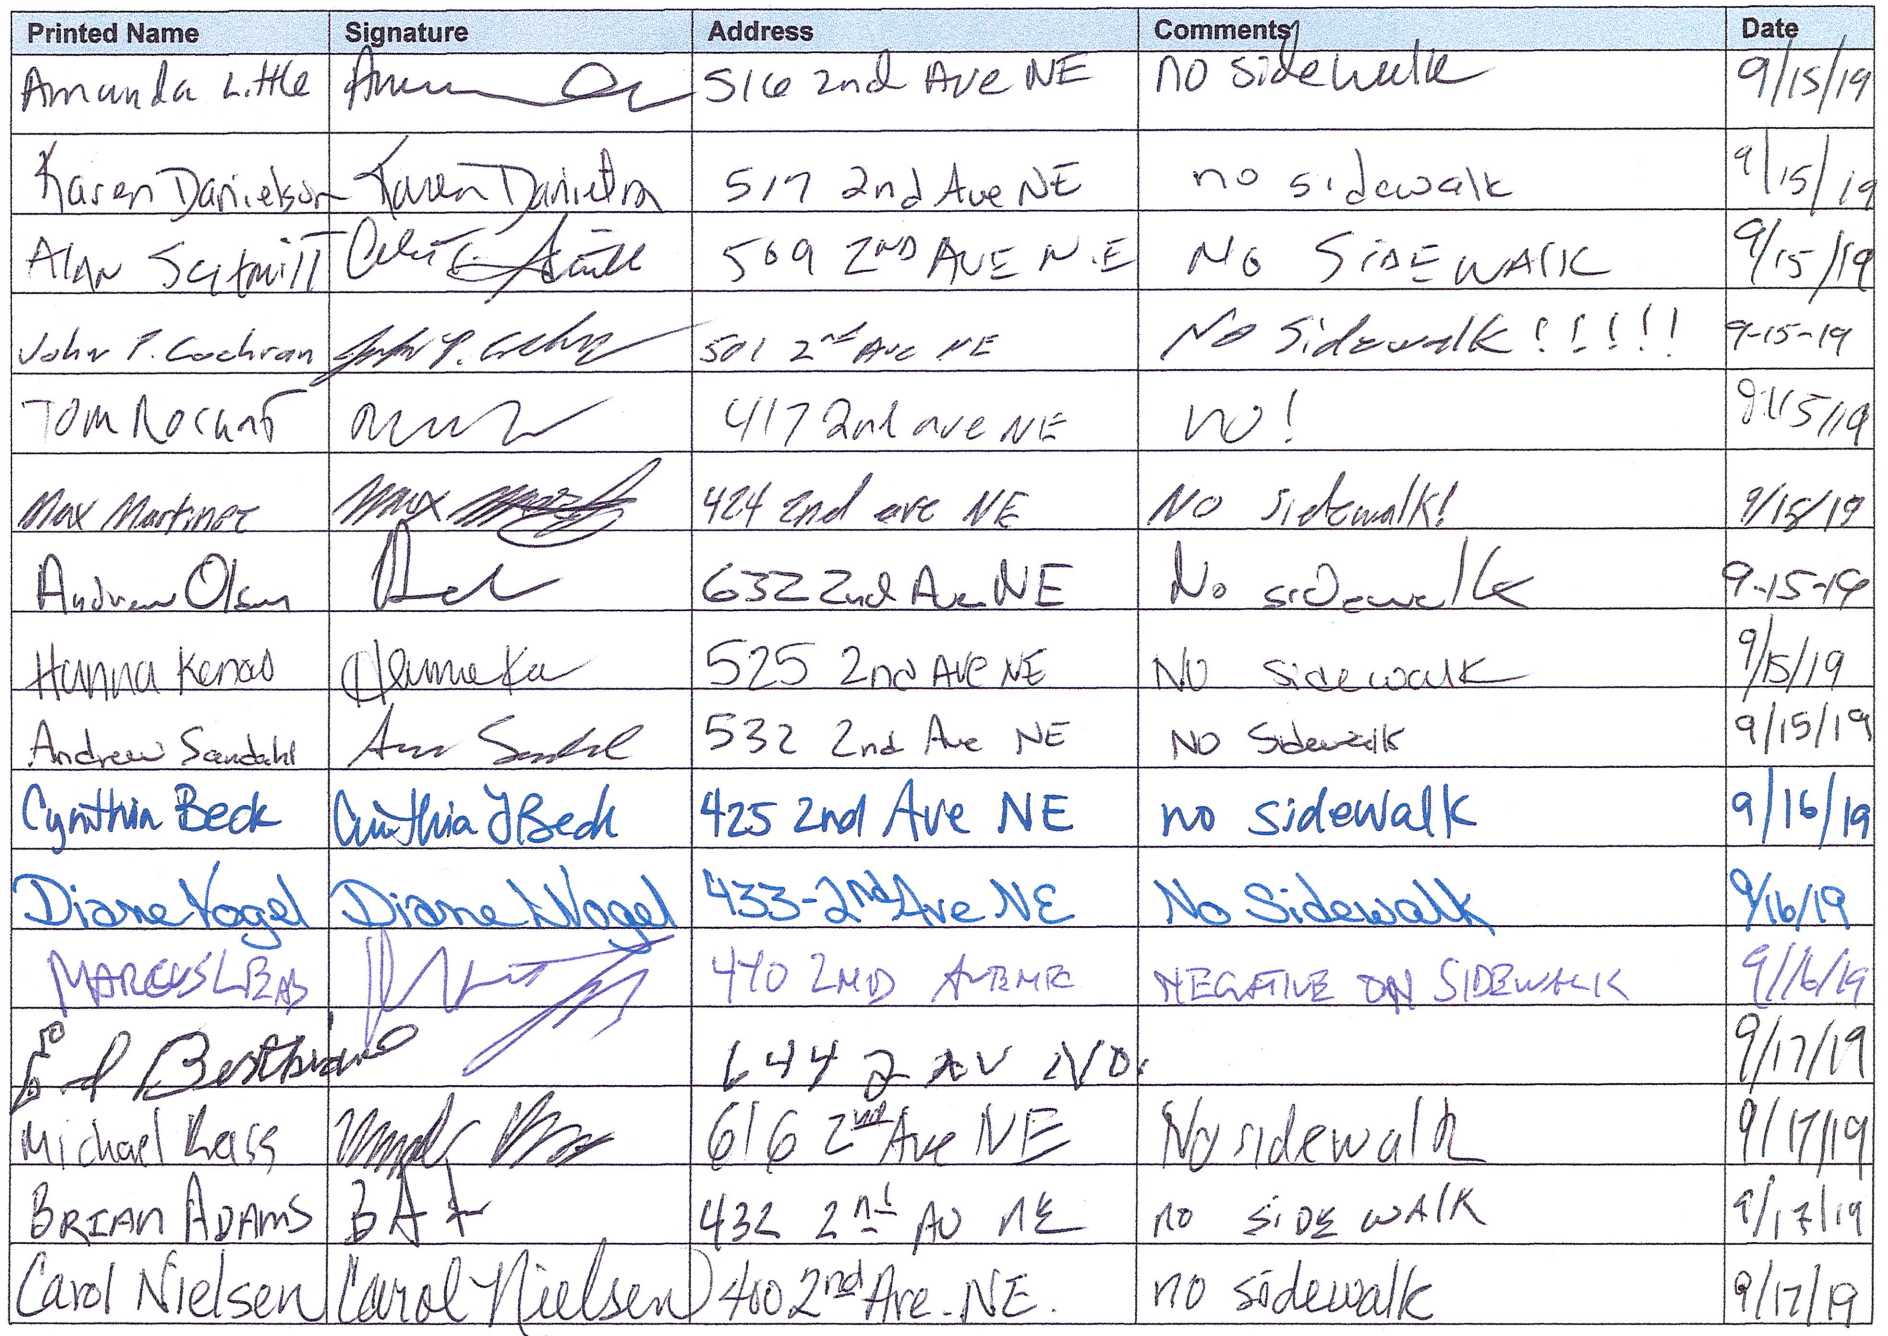 Printed Name Signature Address Comments Date
Amanda Little 516 2nd Ave NE no sidewalk 9/15/19
Karen Danielson Karen Danielson 517 2nd Ave NE no sidewalk 9/15/19
Alan 509 2ND AVE N.E NO SIDEWALK 9/15/19
John P. Cochran John P. Cochran 501 2nd Ave NE No Sidewalk!!!!! 9-15-19
TOM 417 2nd ave NE NO! 9/15/19
Max Martinez Max 424 2nd ave NE NO sidewalk! 9/15/19
Andrew Olson 632 2nd Ave NE No sidewalk 9-15-19
Hanna 525 2nd Ave NE NO sidewalk 9/15/19
Andrew Sandahl 532 2nd Ave NE NO Sidewalk 9/15/19
Cynthia Beck Cynthia J Beck 425 2nd Ave NE no sidewalk 9/16/19
Diane Vogel Diane Vogel 433-2nd Ave NE No Sidewalk 9/16/19
MARCUS 440 2ND NEGATIVE ON SIDEWALK 9/16/19
644 2 AV NO. 9/17/19
Michael 616 2nd Ave NE No sidewalk 9/17/19
BRIAN ADAMS 432 2nd AV NE no SIDEWALK 9/17/19
Carol Nielsen Carol Nielsen 400 2nd Ave. NE. no sidewalk 9/17/19